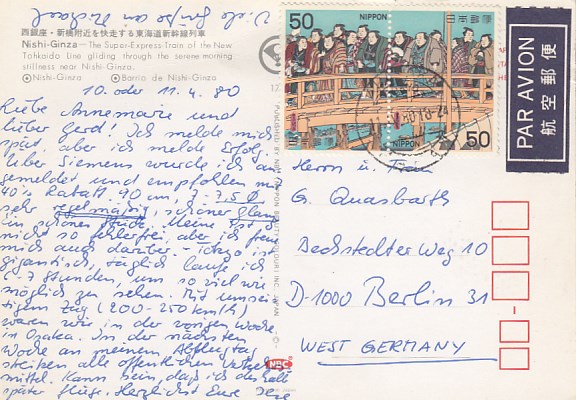 Viele Grüße von Michael
西銀座・新橋附近を快走する東海道新幹線列車
Nishi-Ginza — The Super-Express-Train of the New
Tohkaido Line gliding through the serene morning
stillness near Nishi-Ginza.
Nishi-Ginza Barrio de Nishi-Ginza
10. oder 11. 4. 80
Liebe Annemarie und
lieber Gerd! Ich melde mich
spät, aber ich melde Erfolg.
Über Siemens wurde ich an-
gemeldet und empfohlen mit
40% Rabatt. 40 cm, 7-7,5 Ø
sehr regelmäßig, schöner Glanz
in schöner
nicht so fehlerfrei, aber ich freu
mich auch darüber.
gigantisch, täglich laufe ich
6-7 Stunden, um so viel wie
möglich zu sehen. Mit unsei-
tigem Zug (200-250 km/h)
waren wir in der vorigen Woche
in Osaka. In der nächsten
Woche an meinem Abflugtag
streiken alle öffentlichen Verkehrs-
mittel. Kann sein, daß ich deshalb
später fliege. Herzlichst Eure
NBC
50 NIPPON 日本郵便
NIPPON 50
PAR AVION
航空郵便
Herrn u. Frau
G. Quasbarth
Dechstedter Weg 10
D-1000 Berlin 31
WEST GERMANY